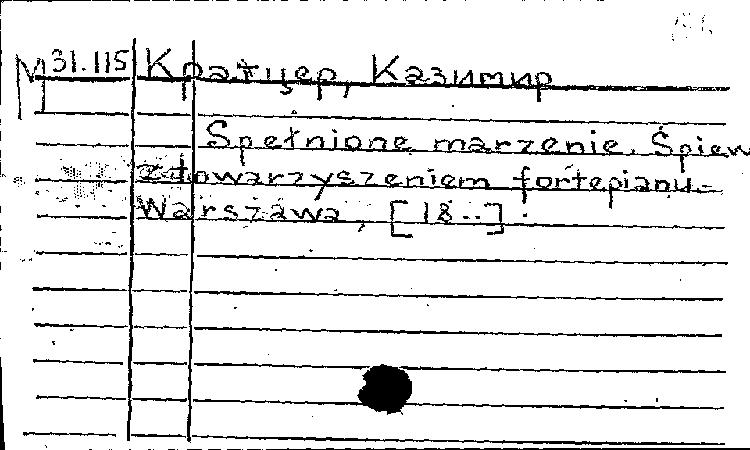 М 31.115 Кратцер, Казимир
Spełnione marzenie. Śpiew
z towarzyszeniem fortepianu.-
Warszawa, [18..].